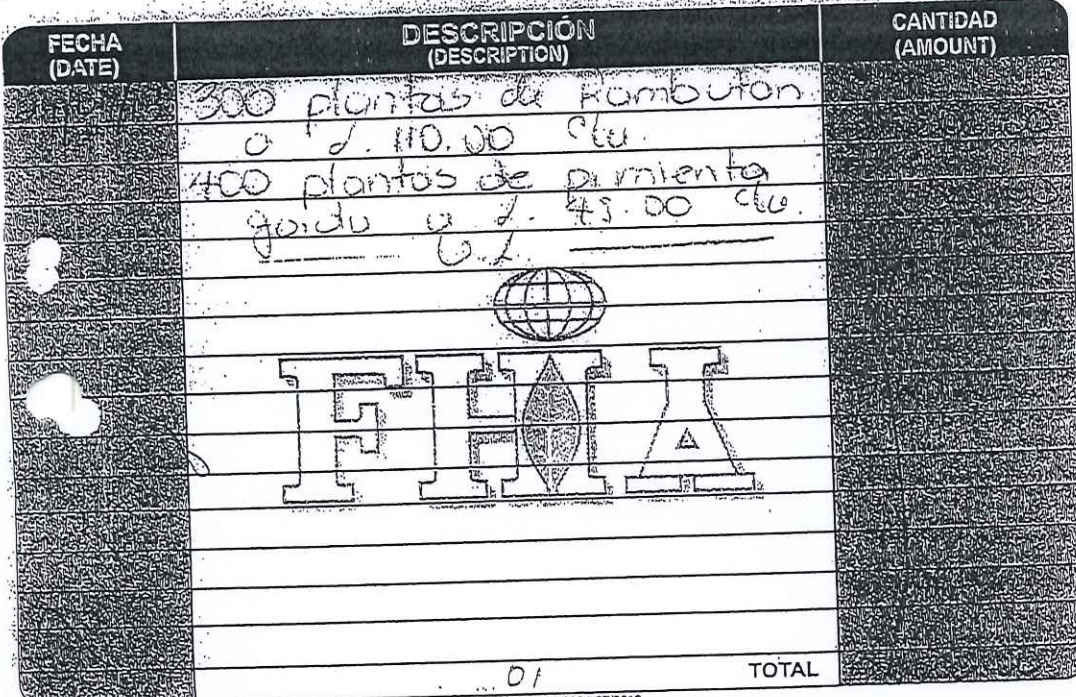 FECHA
(DATE)
DESCRIPCIÓN
(DESCRIPTION)
CANTIDAD
(AMOUNT)
300 plantas de Rambutan
a L. 110.00 c/u.
400 plantas de pimienta
gorda a L. 45.00 c/u.
FHIA
01
TOTAL